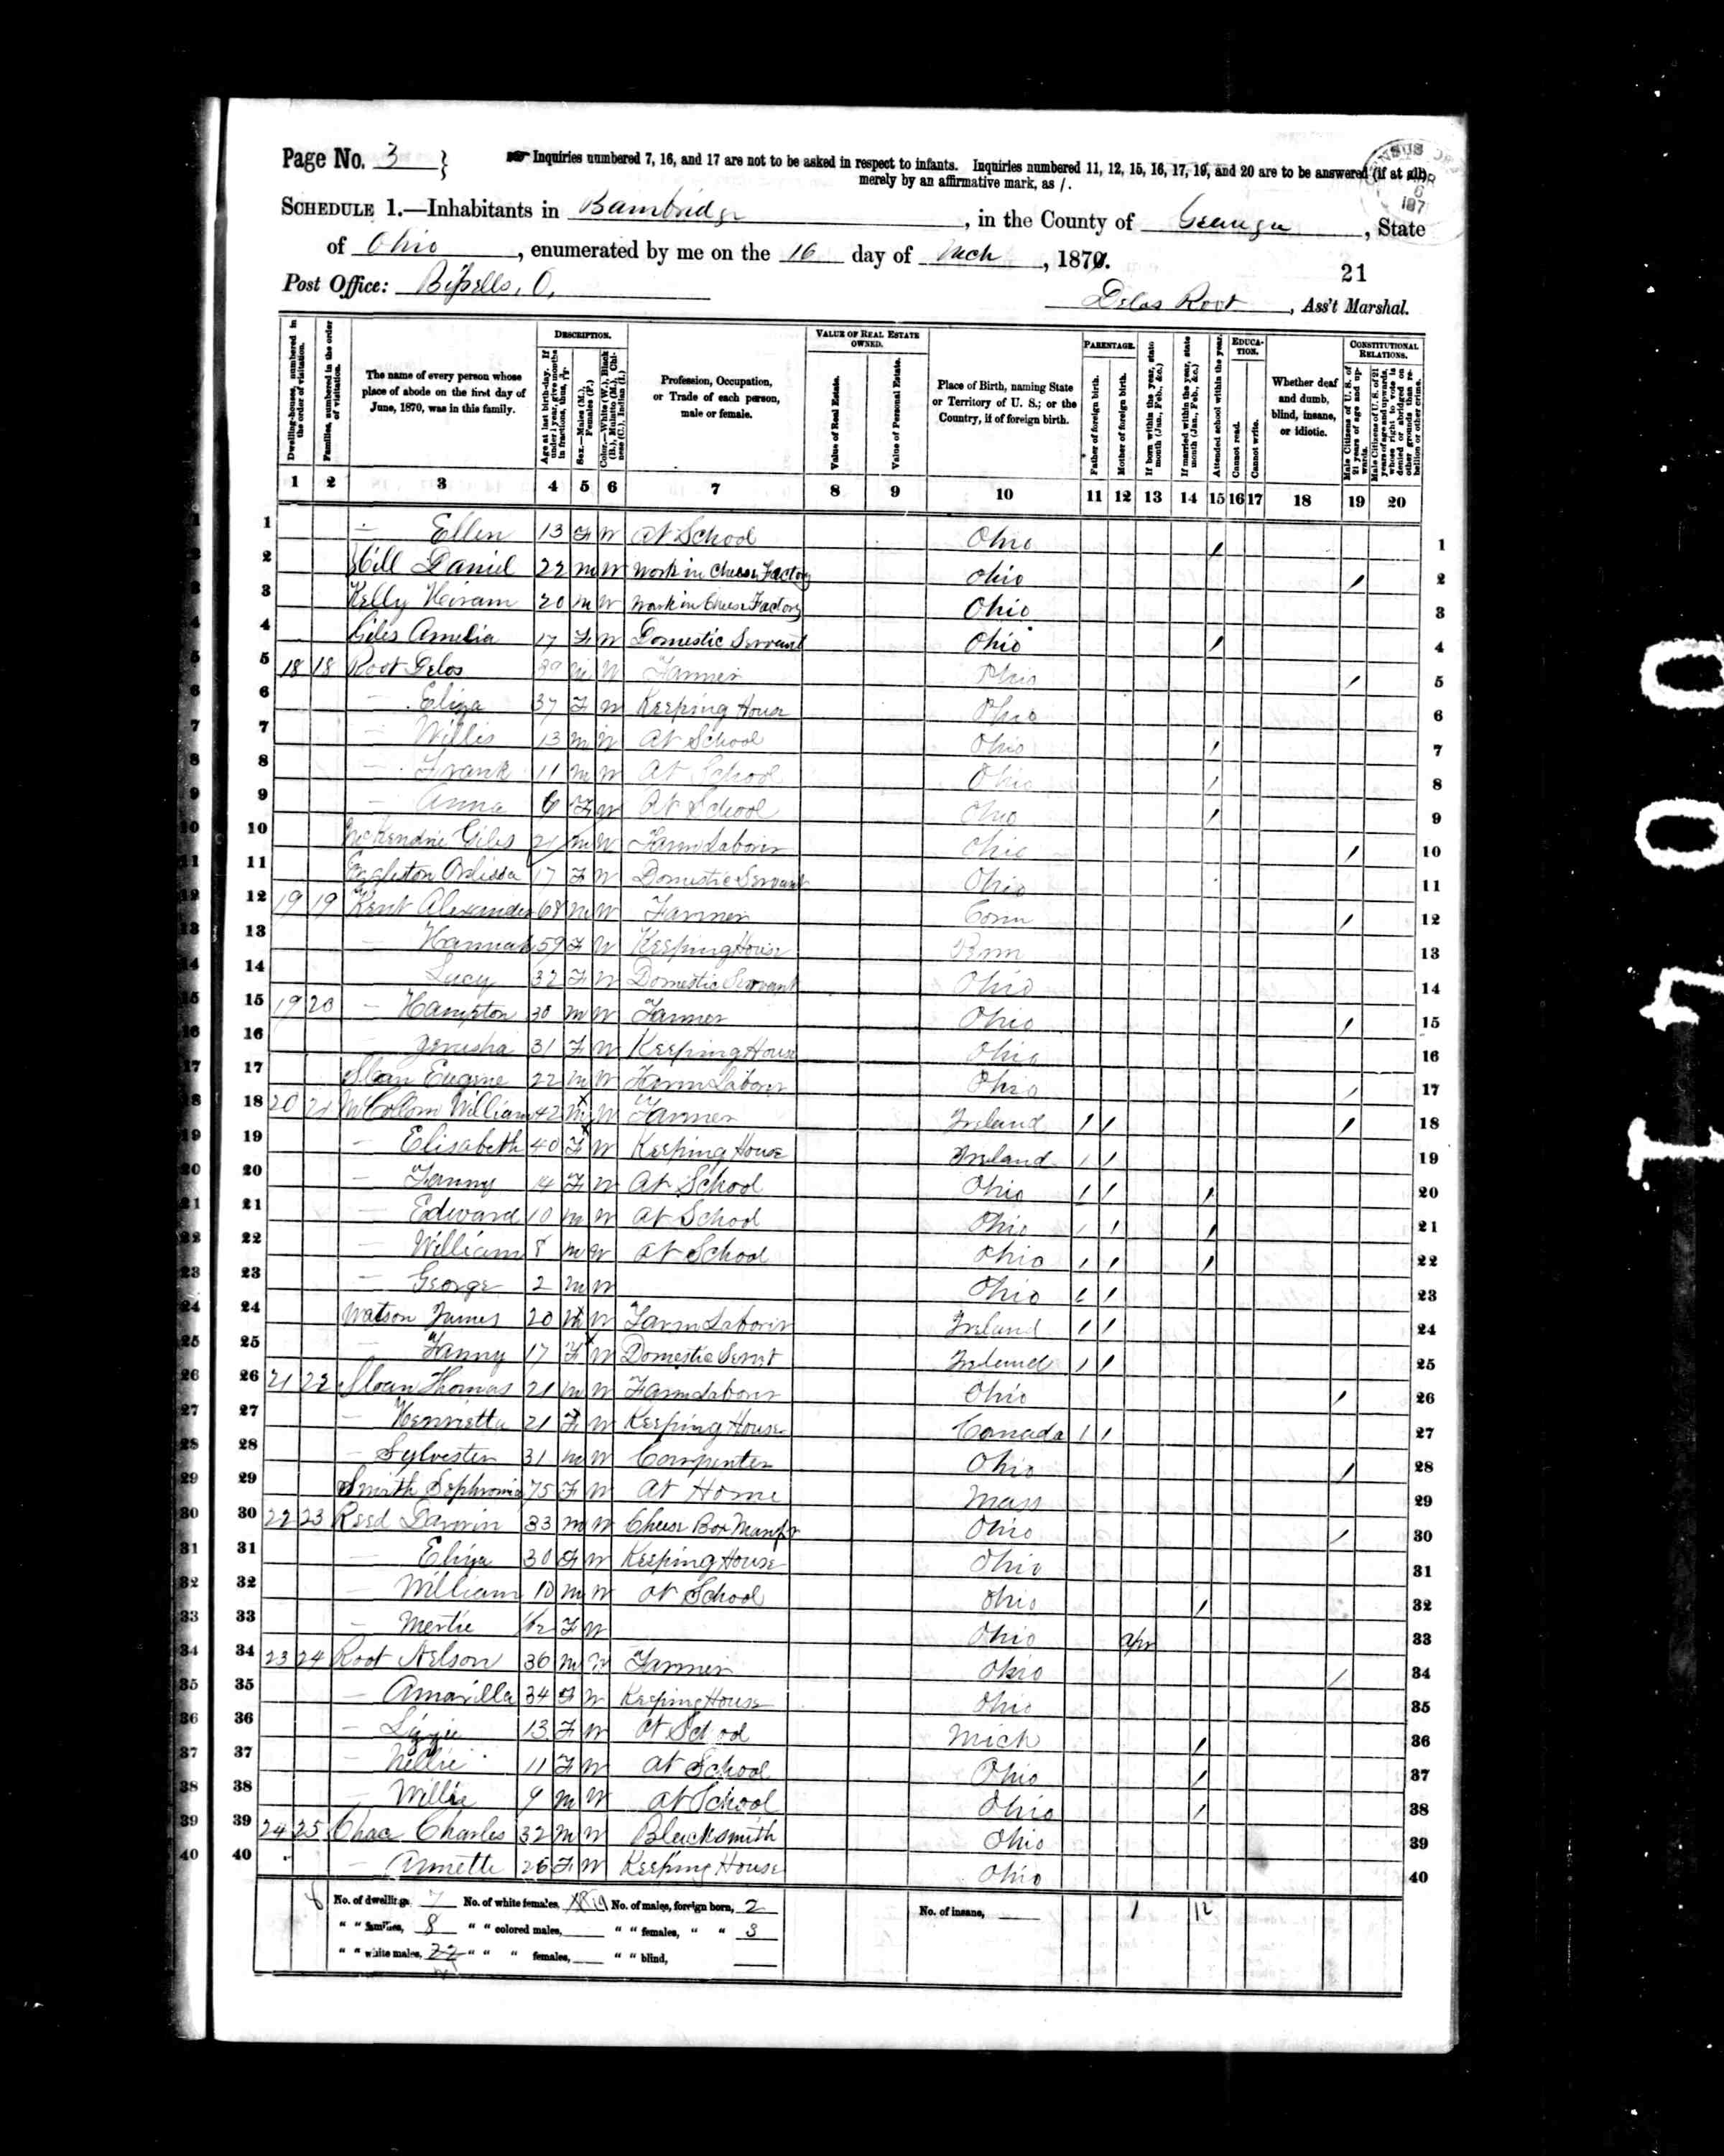 Page No. 3 }
Inquiries numbered 7, 16, and 17 are not to be asked in respect to infants. Inquiries numbered 11, 12, 15, 16, 17, 19, and 20 are to be answered (if at all)
merely by an affirmative mark, as /.
SCHEDULE 1.—Inhabitants in Bambridge, in the County of Geauga, State
of Ohio, enumerated by me on the 16 day of Mch, 1870.
21
Post Office: Bissells, O.
Delos Root, Ass't Marshal.
Dwelling-houses, numbered in the order of visitation.
Families, numbered in the order of visitation.
The name of every person whose place of abode on the first day of June, 1870, was in this family.
DESCRIPTION.
Age at last birth-day. If under 1 year, give months in fractions, thus,
Sex.—Males (M.), Females (F.)
Color.—White (W.), Black (B.), Mulatto (M.), Chinese (C.), Indian (I.)
Profession, Occupation, or Trade of each person, male or female.
VALUE OF REAL ESTATE OWNED.
Value of Real Estate.
Value of Personal Estate.
Place of Birth, naming State or Territory of U. S.; or the Country, if of foreign birth.
PARENTAGE.
Father of foreign birth.
Mother of foreign birth.
If born within the year, state month (Jan., Feb., &c.)
If married within the year, state month (Jan., Feb., &c.)
Attended school within the year.
EDUCATION.
Cannot read.
Cannot write.
Whether deaf and dumb, blind, insane, or idiotic.
CONSTITUTIONAL RELATIONS.
Male Citizens of U. S. of 21 years of age and upwards.
Male Citizens of U. S. of 21 years of age and upwards, whose right to vote is denied or abridged on other grounds than rebellion or other crime.
1 2 3 4 5 6 7 8 9 10 11 12 13 14 15 16 17 18 19 20
1 — Ellen 13 F W At School Ohio / 1
2 Hill Daniel 22 M W Work in Cheese Factory Ohio / 2
3 Kelly Heiram 20 M W Work in Cheese Factory Ohio 3
4 Giles Amelia 17 F W Domestic Servant Ohio / 4
5 18 18 Root Delos M W Farmer Ohio / 5
6 — Eliza 37 F W Keeping House Ohio 6
7 — Willis 13 M W At School Ohio / 7
8 — Frank 11 M W At School Ohio / 8
9 — Anna 6 F W At School Ohio / 9
10 Giles 21 M W Farm Laborer Ohio / 10
11 Eggleston Orlissa 17 F W Domestic Servant Ohio 11
12 19 19 Kent Alexander 68 M W Farmer Conn / 12
13 — Hannah 59 F W Keeping House 13
14 Lucy 32 F W Domestic Servant Ohio 14
15 19 20 — Hampton 30 M W Farmer Ohio / 15
16 Jerusha 31 F W Keeping House Ohio 16
17 Sloan Eugene 22 M W Farm Laborer Ohio / 17
18 20 21 McCollom William 42 M W Farmer Ireland / / / 18
19 — Elisabeth 40 F W Keeping House Ireland / / 19
20 — Fanny 14 F W At School Ohio / / / 20
21 — Edward 10 M W At School Ohio / / / 21
22 — William 8 M W At School Ohio / / / 22
23 — George 2 M W Ohio / / 23
24 Watson James 20 M W Farm Laborer Ireland / / 24
25 — Fanny 17 F W Domestic Servt Ireland / / 25
26 21 22 Sloan Thomas 21 M W Farm Laborer Ohio / 26
27 — Henrietta 21 F W Keeping House Canada / / 27
28 — Sylvester 31 M W Carpenter Ohio / 28
29 Smith Sophronia 75 F W At Home Mass 29
30 22 23 Reed Darwin 33 M W Cheese Box Manfr Ohio / 30
31 — Eliza 30 F W Keeping House Ohio 31
32 — William 10 M W At School Ohio / 32
33 — Mertie F W Ohio Apr 33
34 23 24 Root Nelson 36 M W Farmer Ohio / 34
35 — Amarilla 34 F W Keeping House Ohio 35
36 — Lizzie 13 F W At School Mich / 36
37 — Nellie 11 F W At School Ohio / 37
38 — Willie 9 M W At School Ohio / 38
39 24 25 Chace Charles 32 M W Blacksmith Ohio 39
40 — Annette 26 F W Keeping House Ohio 40
No. of dwellings, 7 No. of white females, 18 19 No. of males, foreign born, 2 No. of insane, 1 12
" " families, 8 " " colored males, " " females, " " 3
" " white males, 22 " " " females, " " blind,